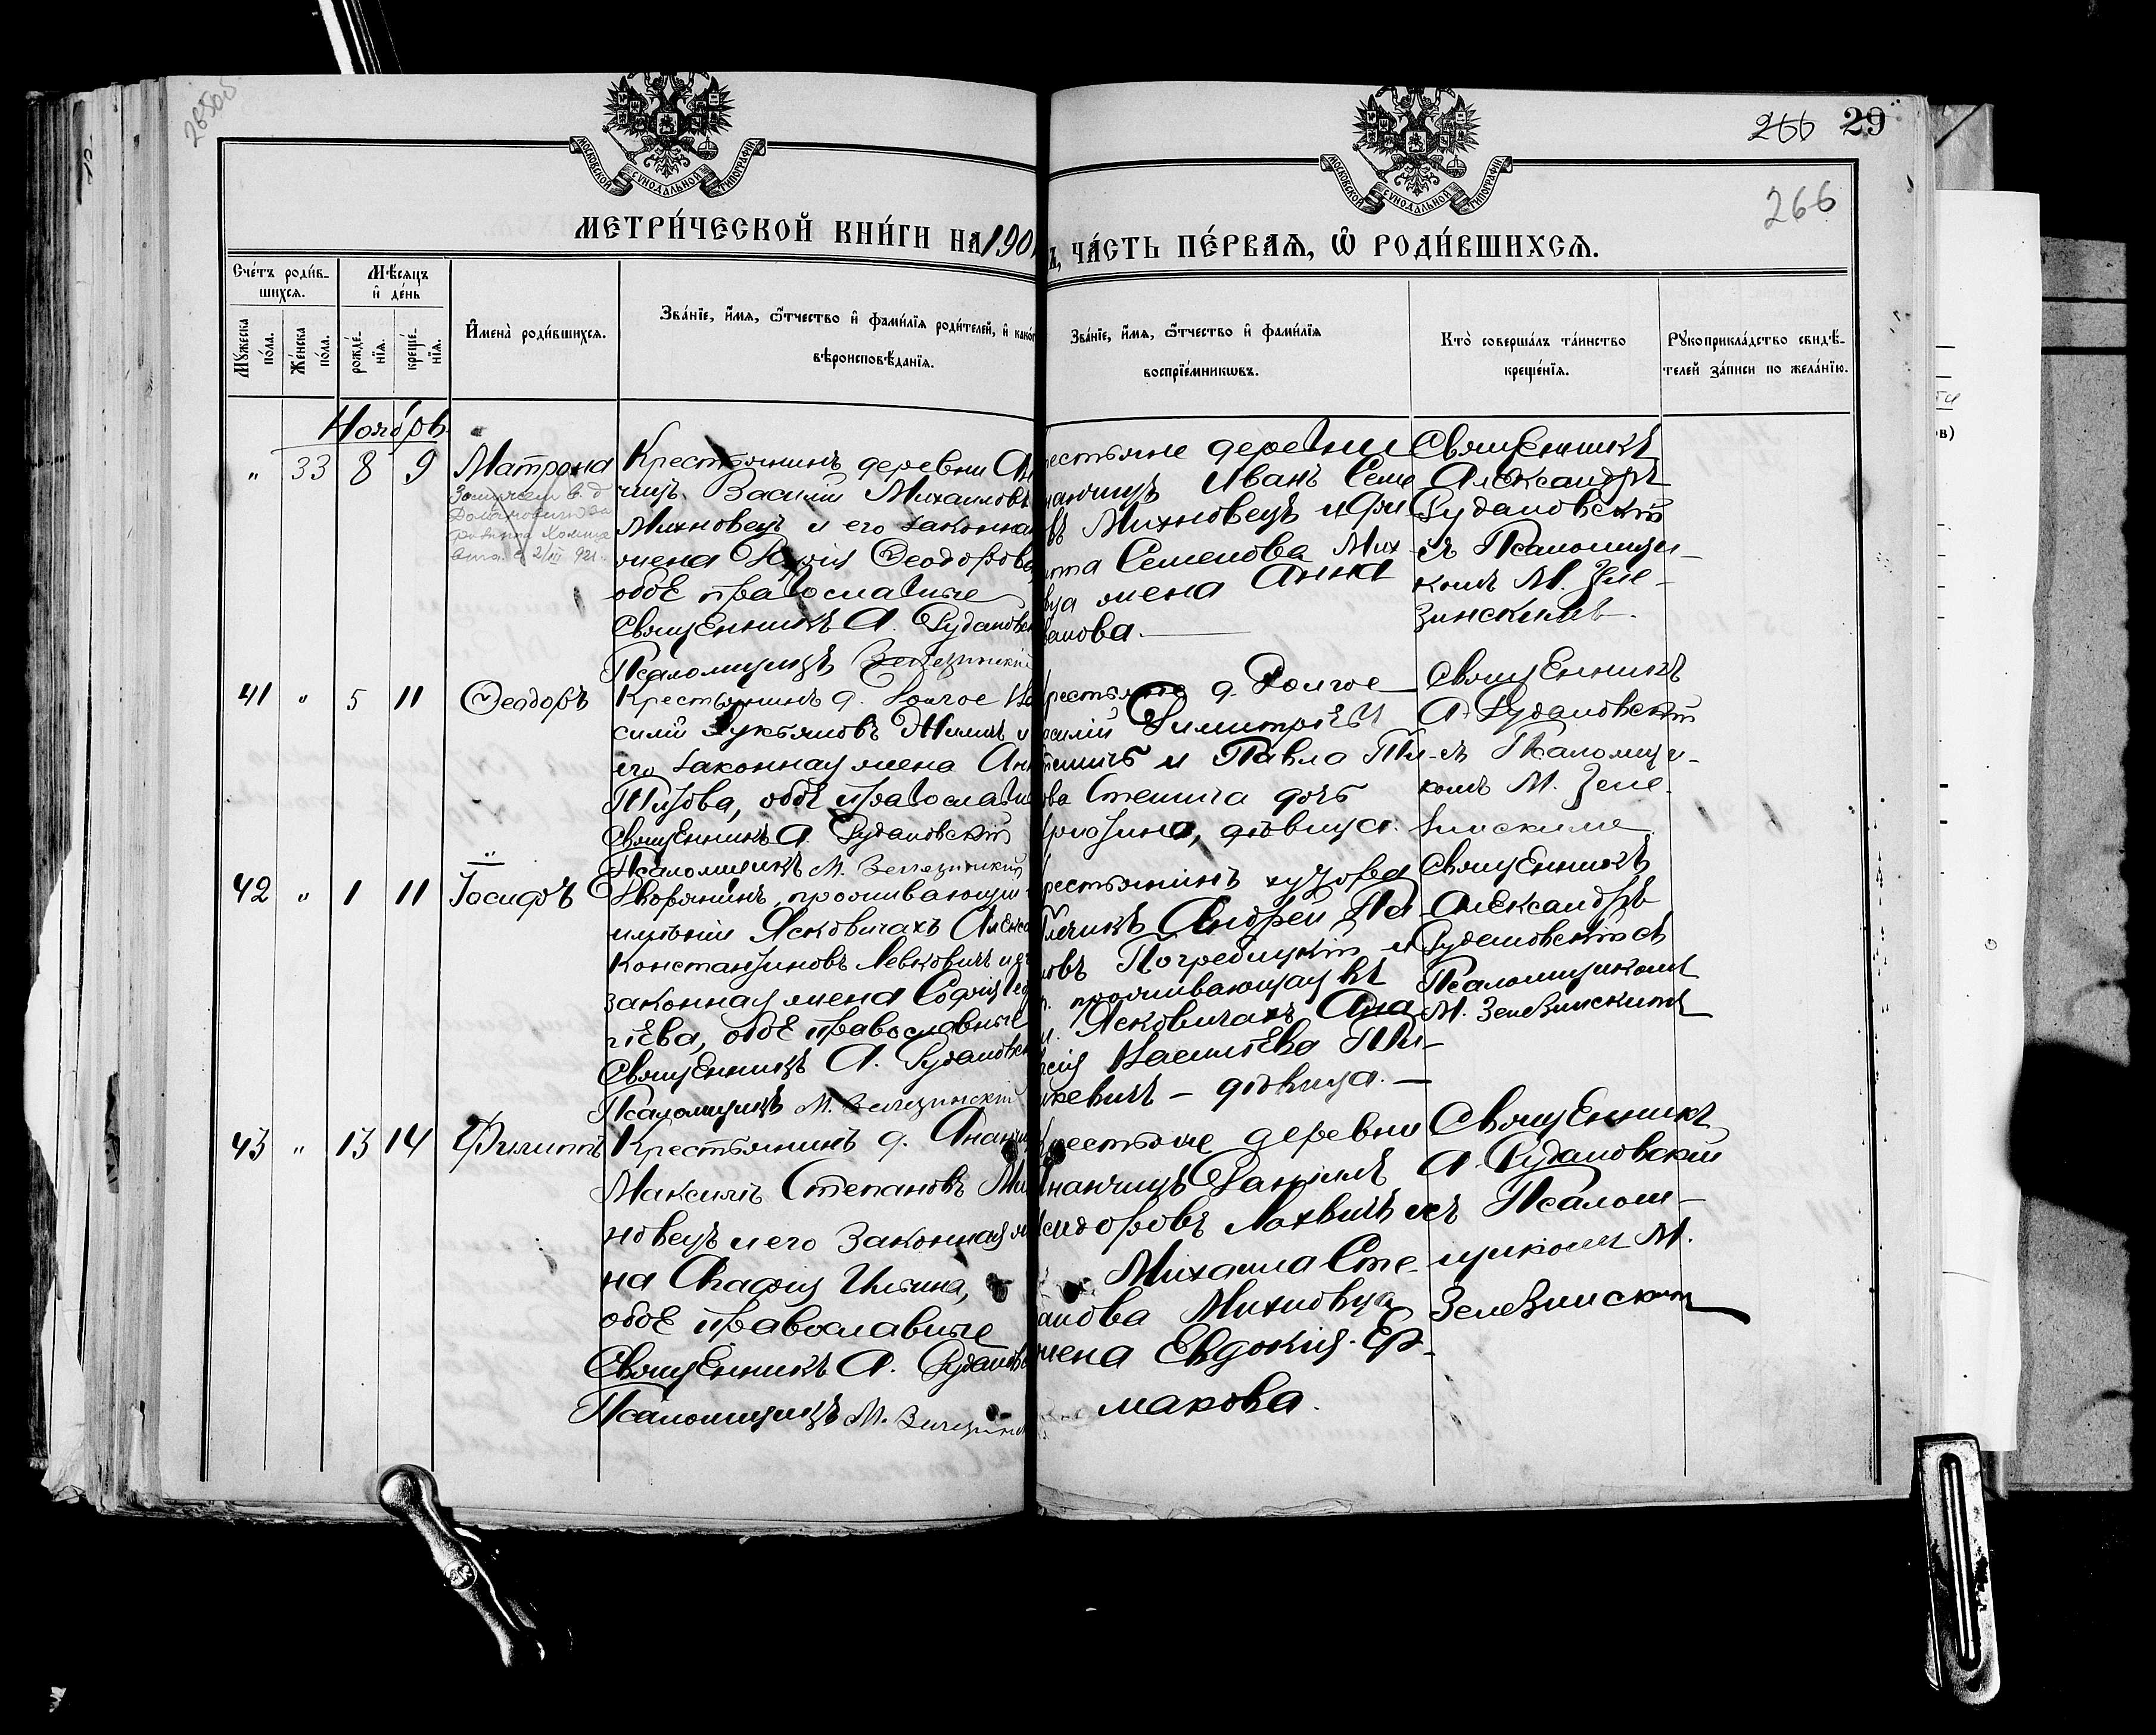 28505
МОСКОВСКОЙ СѴНОДАЛЬНОЙ ТИПОГРАФІИ
МОСКОВСКОЙ СѴНОДАЛЬНОЙ ТИПОГРАФІИ
266 29
266
МЕТРИ́ЧЕСКОЙ КНИ́ГИ НА 190
ъ, ЧА́СТЬ ПЕ́РВАѦ, Ѡ҆ РОДИ́ВШИХСѦ.
Сче́тъ роди́в-
шихсѧ.
Мѣ́сѧцъ
и҆ де́нь
Мꙋ́жеска
по́ла.
Же́нска
по́ла.
рожде́-
нїѧ.
креще́-
нїѧ.
И҆мена̀ роди́вшихсѧ.
Зва́нїе, и҆́мѧ, ѻ҆́тчество и҆ фами́лїѧ роди́телей, и҆ како
вѣроисповѣ́данїѧ.
Зва́нїе, и҆́мѧ, ѻ҆́тчество и҆ фами́лїѧ
воспрїе́мникѡвъ.
Кто̀ соверша́лъ та́инство
креще́нїѧ.
Рꙋкоприкла́дство свидѣ́-
телей за́писи по жела́нїю.
Ноябрь
" 33 8 9 Матрона
Крестьянинъ деревни Ан
чицъ Василій Михаиловъ
Михновецъ и его законная
жена Ѳеодорова
обѣ православные
Священникъ А. Рудановск
Псаломщикъ Зелезинскій
естьяне деревни
нанчицъ Иванъ Семе
въ Михновецъ и Фи
ипа Семенова Мих
вца жена Анна
ванова.
Священникъ
Александръ
Рудановскій
съ Псаломщи-
комъ М. Зеле-
зинскимъ.
41 " 5 11 Ѳеодоръ
Крестьянинъ д. Долгое Ва
силій Лукьяновъ Жилич и
его законная жена Анн
Титова, обѣ православны
Священникъ А. Рудановскій
Псаломщикъ М. Зелезинскій
рестьяне д. Долгое
силій Димитріевъ
и Павла Ти-
ова Стешича дочь
дѣвица.
Священникъ
А. Рудановскій
съ Псаломщи-
комъ М. Зеле-
зинскимъ
42 " 1 11 Іосифъ
Дворянинъ, проживающій
имѣніи Ясковичахъ Алекса
Константиновъ Левковичъ и е
законная жена Софія Ге
гіева, обѣ православные
Священникъ А. Рудановск
Псаломщикъ М. Зелезинскій
рестьянинъ хутора
Андрей Па
овъ Погребицкій и
проживающая въ
Ясковичахъ Ана
сія Васильева Ми-
кевичъ - дѣвица.
Священникъ
Александръ
Рудановскій съ
Псаломщикомъ
М. Зелезинскимъ
43 " 13 14 Филиппъ
Крестьянинъ д. Ананчи
Максимъ Степановъ Мих
новецъ и его законная же
на Агафія Ильина,
обѣ православные
Священникъ А. Руданов
Псаломщикъ М. Зелезинск
Крестьяне деревни
Ананчицъ Даніилъ
сидоровъ Лохвичъ и
Михаила Сте-
анова Михновца
жена Евдокія Ер-
макова.
Священникъ
А. Рудановскій
съ Псалом-
щикомъ М.
Зелезинскимъ